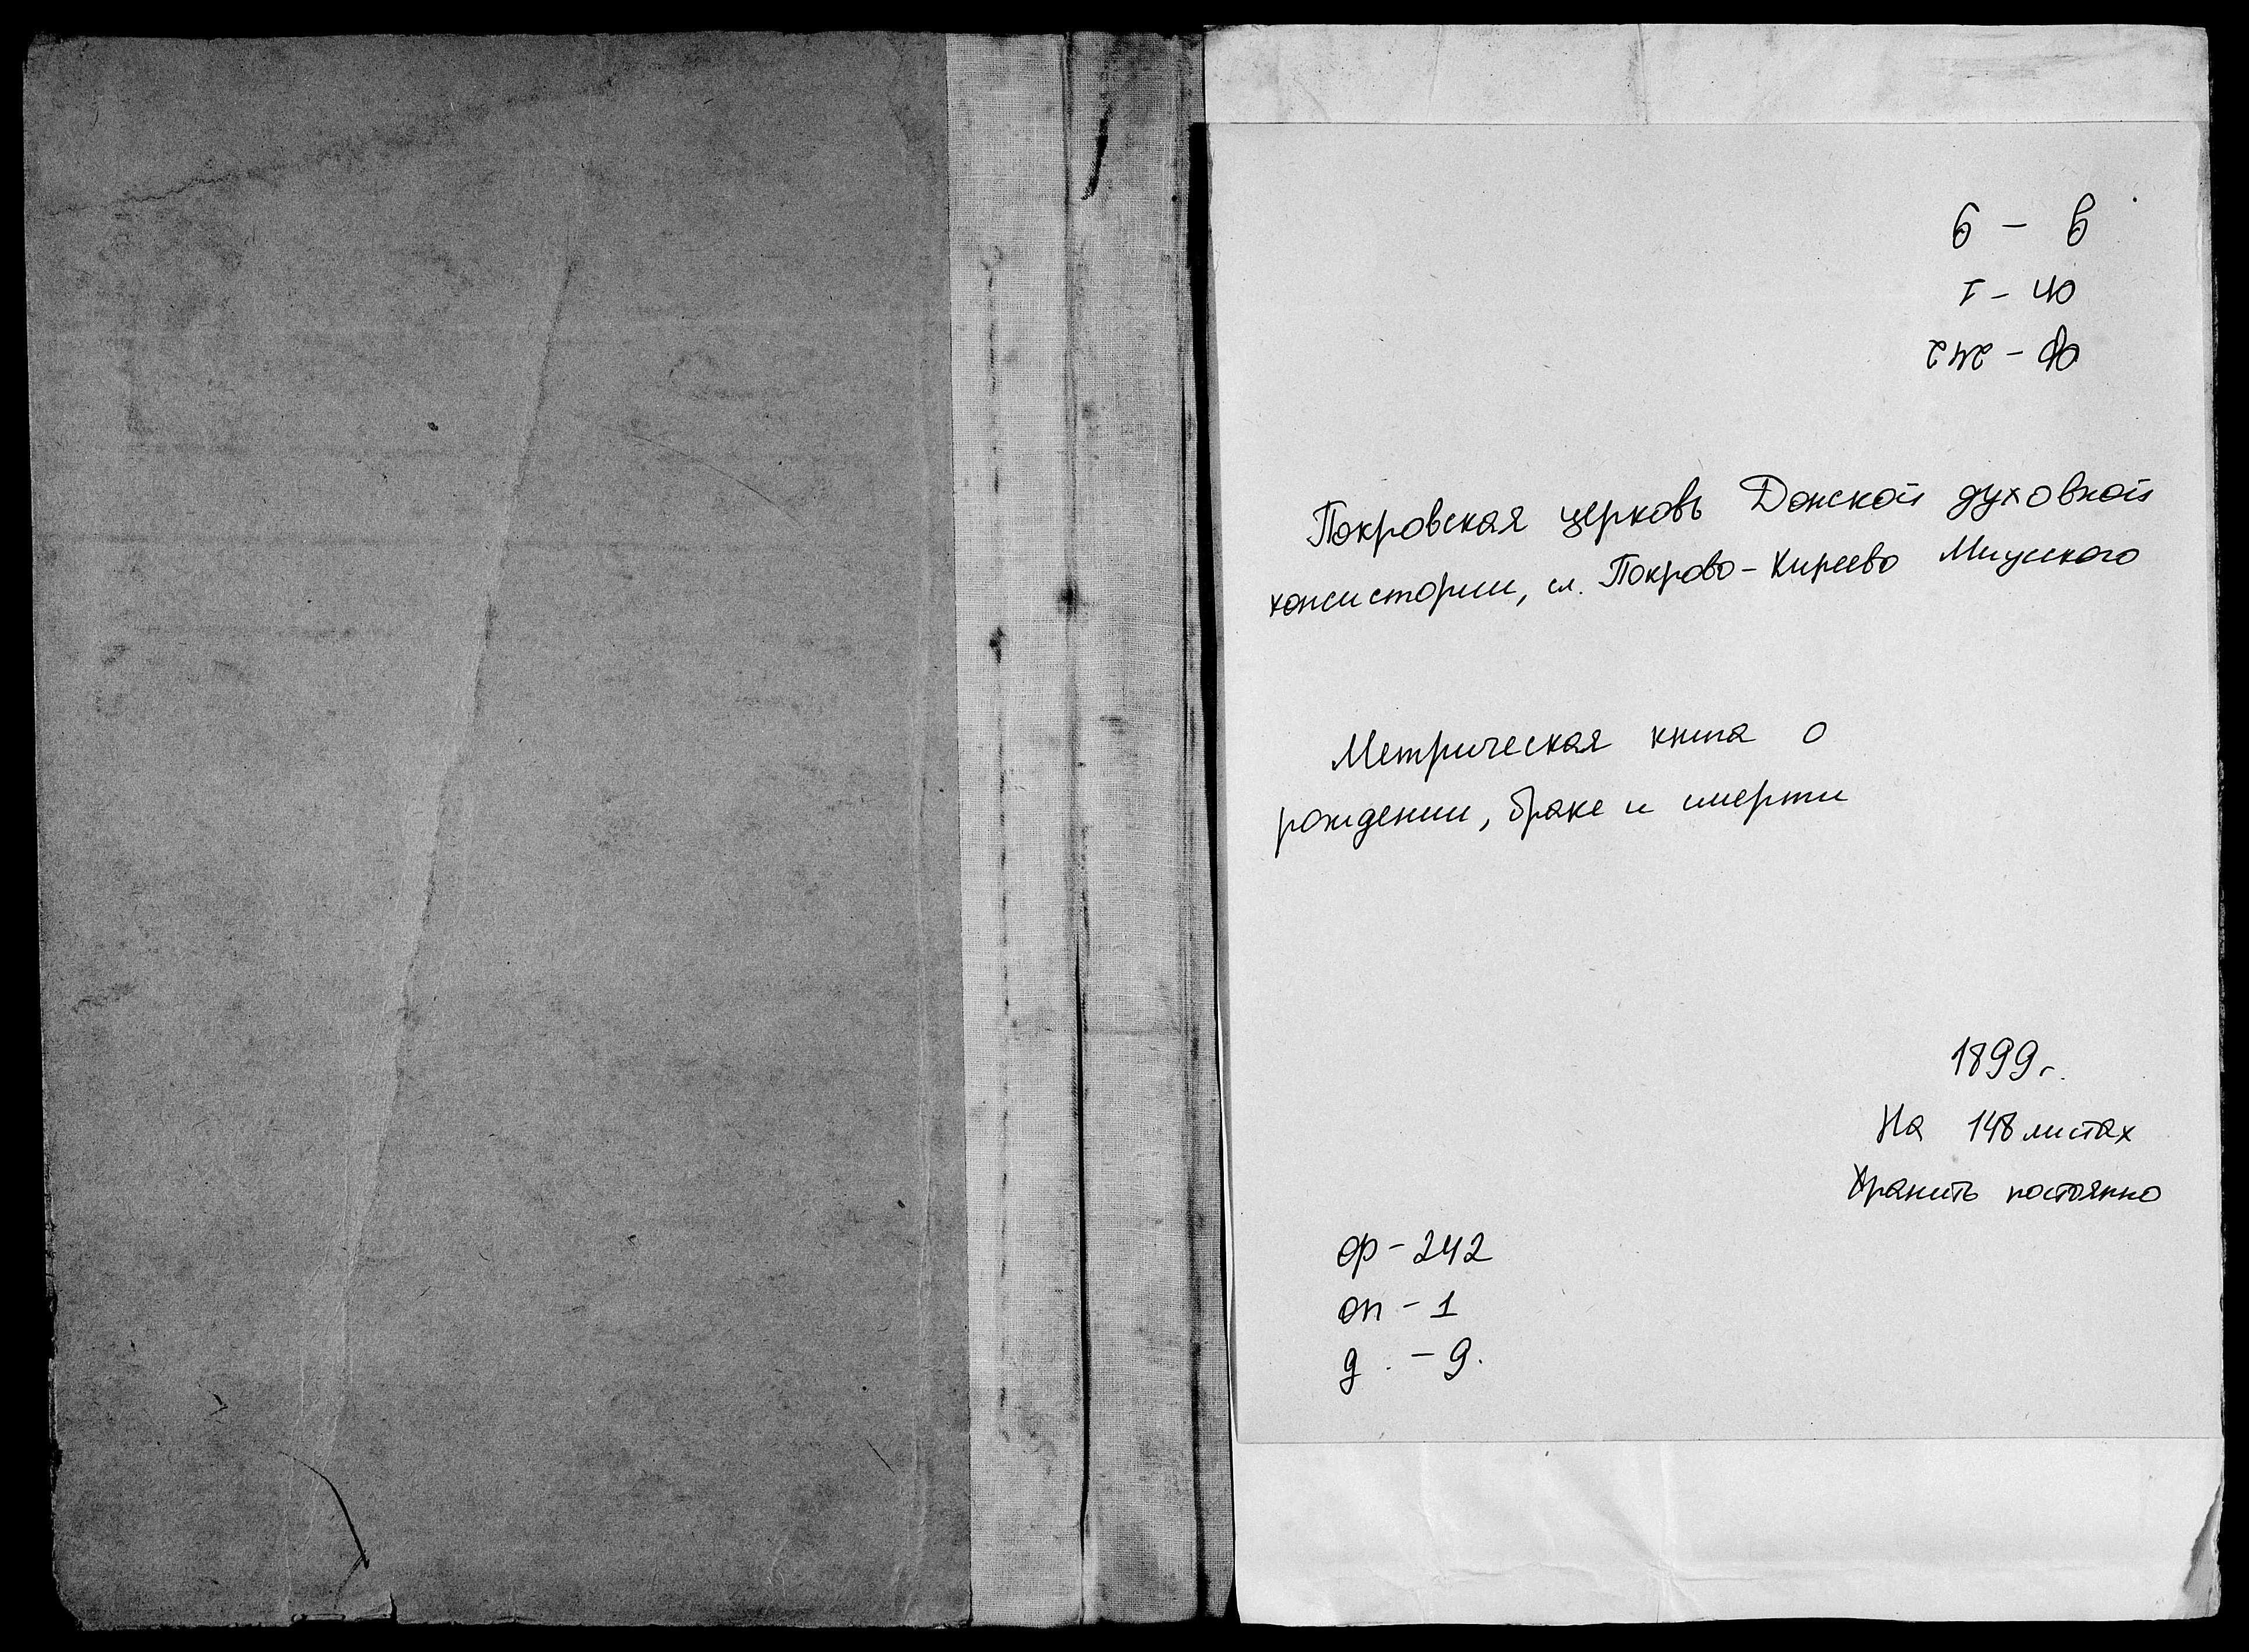 ф - 242
оп - 1
д - 9
Покровская церковь Донской духовной
консистории, сл. Покрово-Киреево Миусского
Метрическая книга о
рождении, браке и смерти
1899г.
На 148 листах
Хранить постоянно
ф - 242
оп - 1
д. - 9.